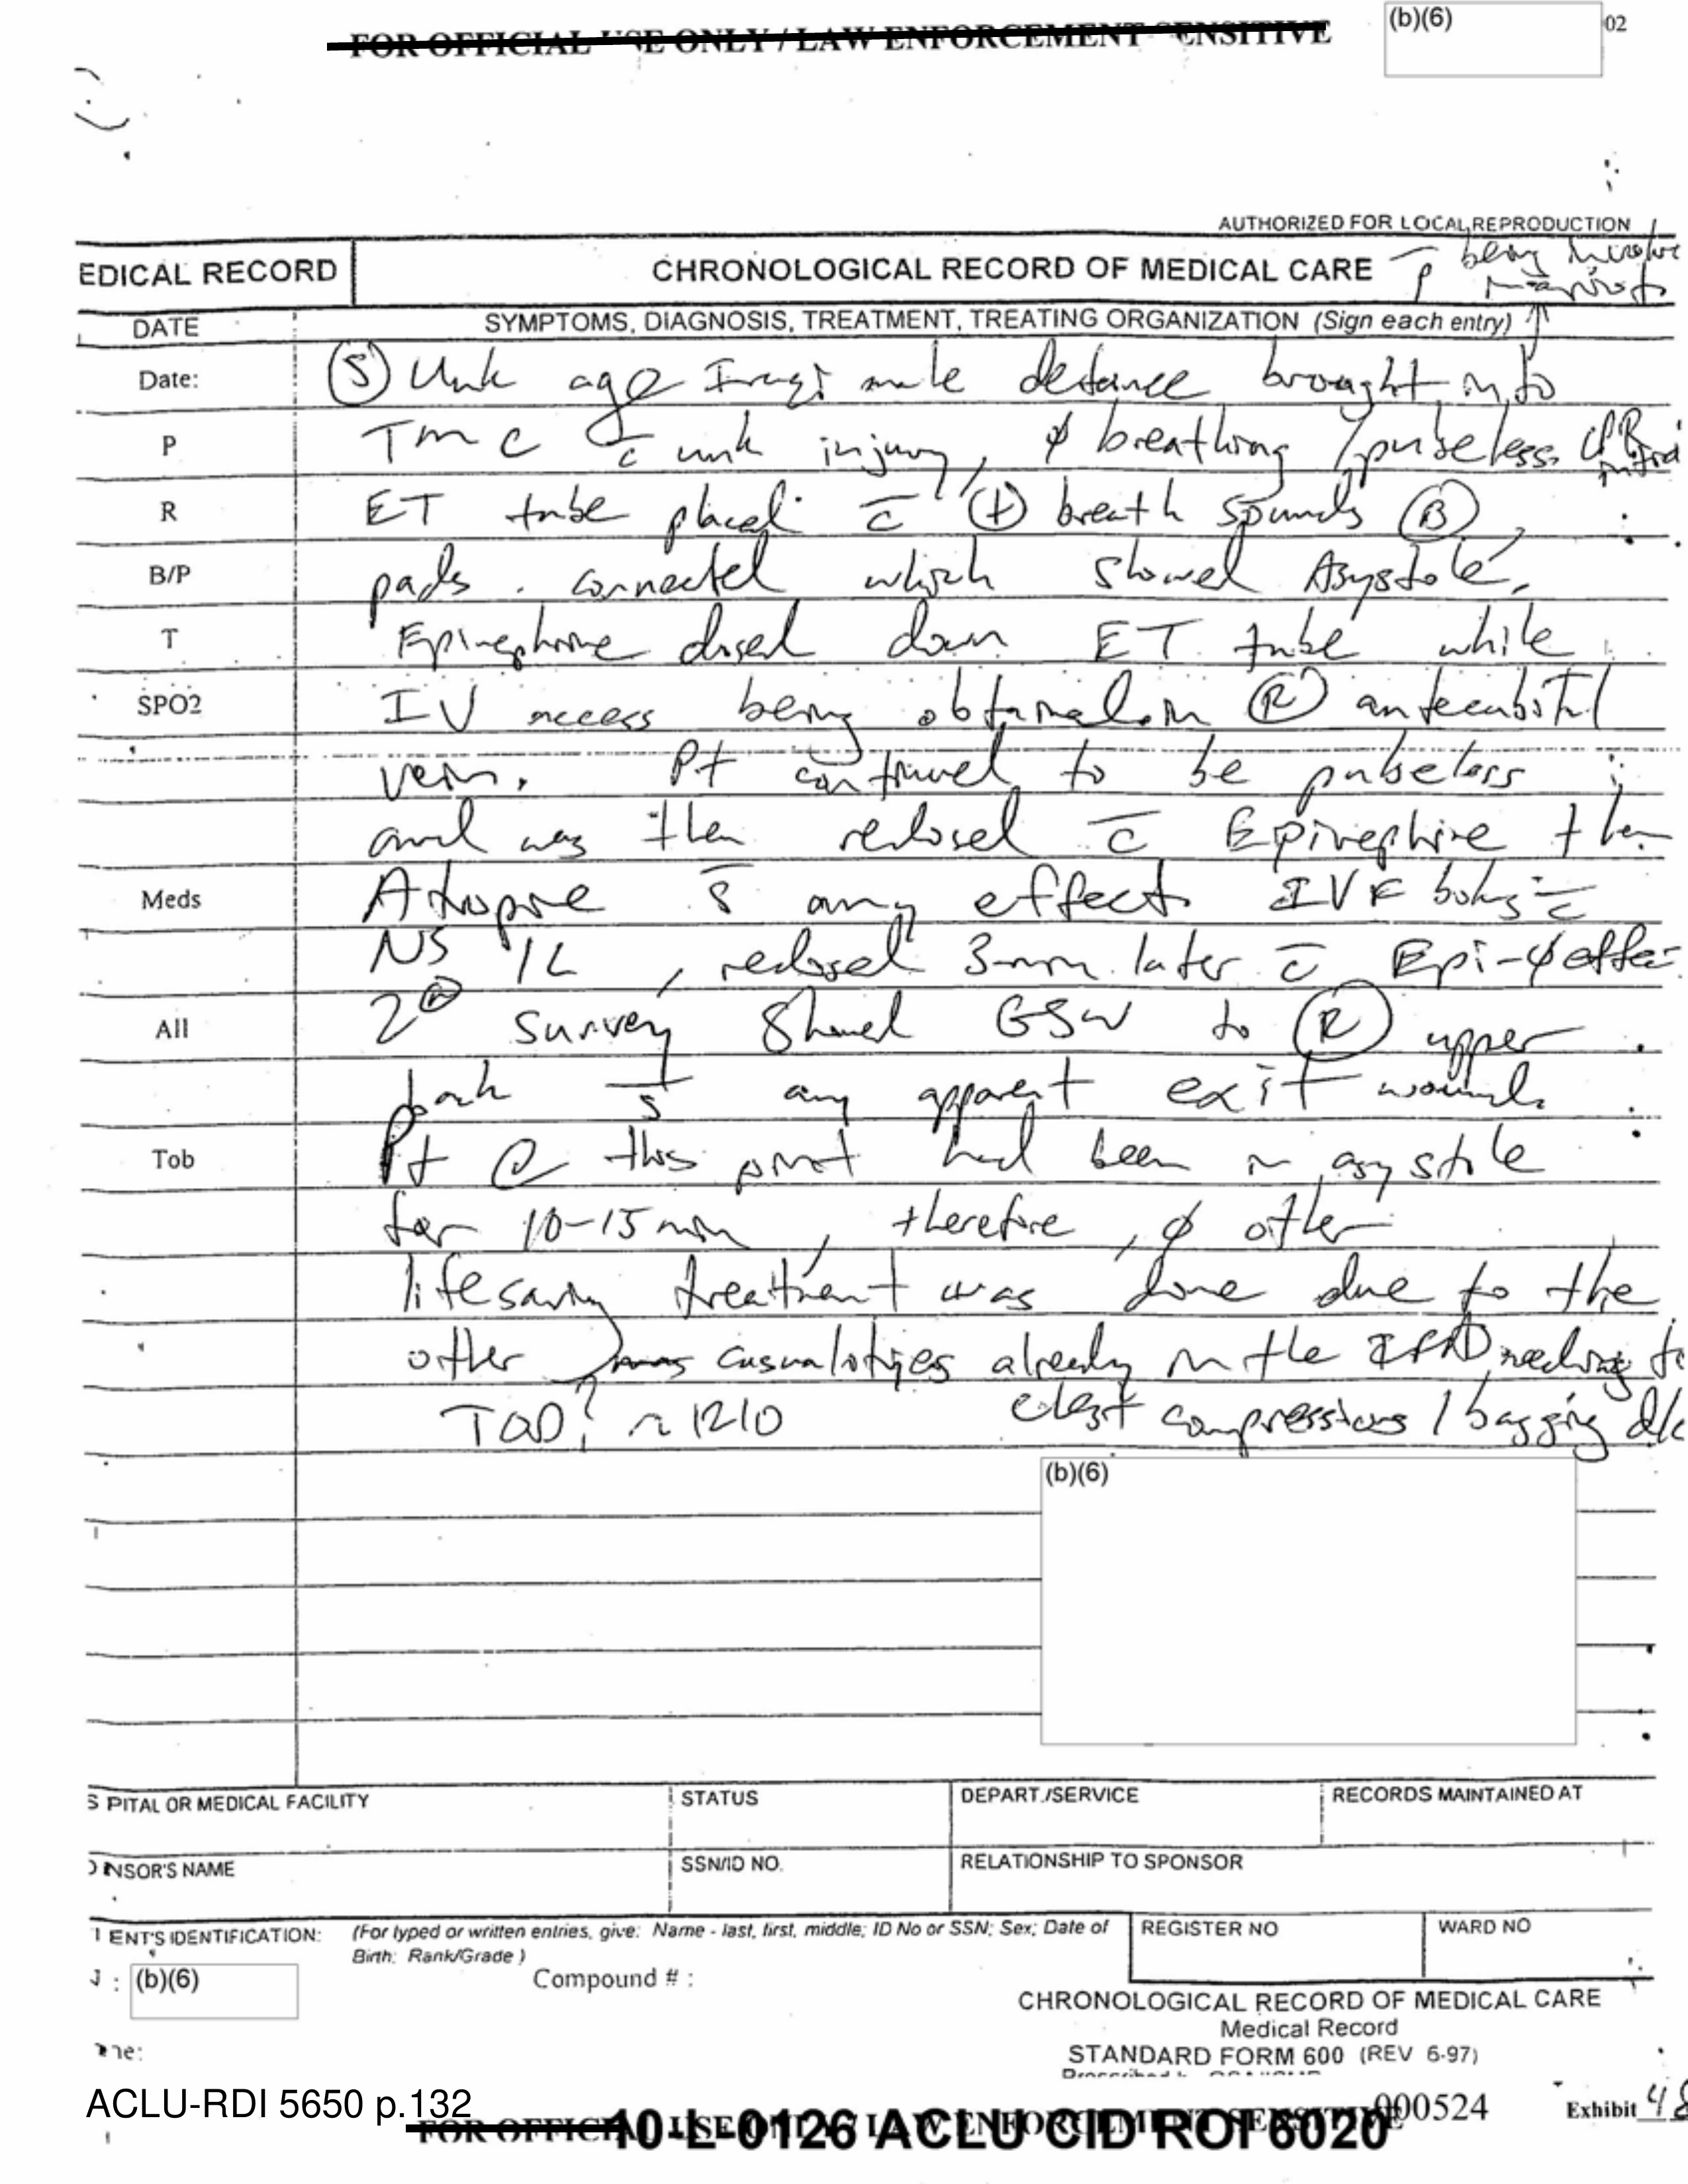 FOR OFFICIAL USE ONLY / LAW ENFORCEMENT SENSITIVE
(b)(6)
02
AUTHORIZED FOR LOCAL REPRODUCTION
EDICAL RECORD
CHRONOLOGICAL RECORD OF MEDICAL CARE
p̄ being
DATE
SYMPTOMS, DIAGNOSIS, TREATMENT, TREATING ORGANIZATION (Sign each entry)
Date:
Ⓢ Unk age Iraqi male detainee brought into
P
TMC c̄ unk injury, ϕ breathing / pulseless. CPR
R
ET tube placed c̄ ⊕ breath sounds Ⓑ,
B/P
pads connected which showed Asystole.
T
Epinephrine dosed down ET tube while
SPO2
IV access being obtained in Ⓡ antecubital
vein. Pt continued to be pulseless
and was then redosed c̄ Epinephrine then
Meds
Atropine s̄ any effect. IVF bolus c̄
NS 1L, redosed 3 min later c̄ Epi-ϕ effec
All
2° survey showed GSW to Ⓡ upper
back s̄ any apparent exit wound.
Tob
Pt @ this point had been in asystole
for 10-15 min, therefore, ϕ other
lifesaving treatment was done due to the
other casualities already in the needing t
TOD: ~ 1210
chest compressions / bagging d/c
(b)(6)
S PITAL OR MEDICAL FACILITY
STATUS
DEPART./SERVICE
RECORDS MAINTAINED AT
NSOR'S NAME
SSN/ID NO.
RELATIONSHIP TO SPONSOR
ENT'S IDENTIFICATION:
(For typed or written entries, give: Name - last, first, middle; ID No or SSN; Sex; Date of
Birth; Rank/Grade )
REGISTER NO
WARD NO
: (b)(6)
Compound # :
CHRONOLOGICAL RECORD OF MEDICAL CARE
Medical Record
STANDARD FORM 600 (REV 6-97)
me:
ACLU-RDI 5650 p.132
000524
Exhibit 48
FOR OFFICIAL USE ONLY / LAW ENFORCEMENT SENSITIVE
10-L-0126 ACLU CID ROI 6020